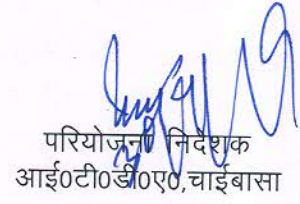 परियोजना निदेशक
आई0टी0डी0ए0,चाईबासा